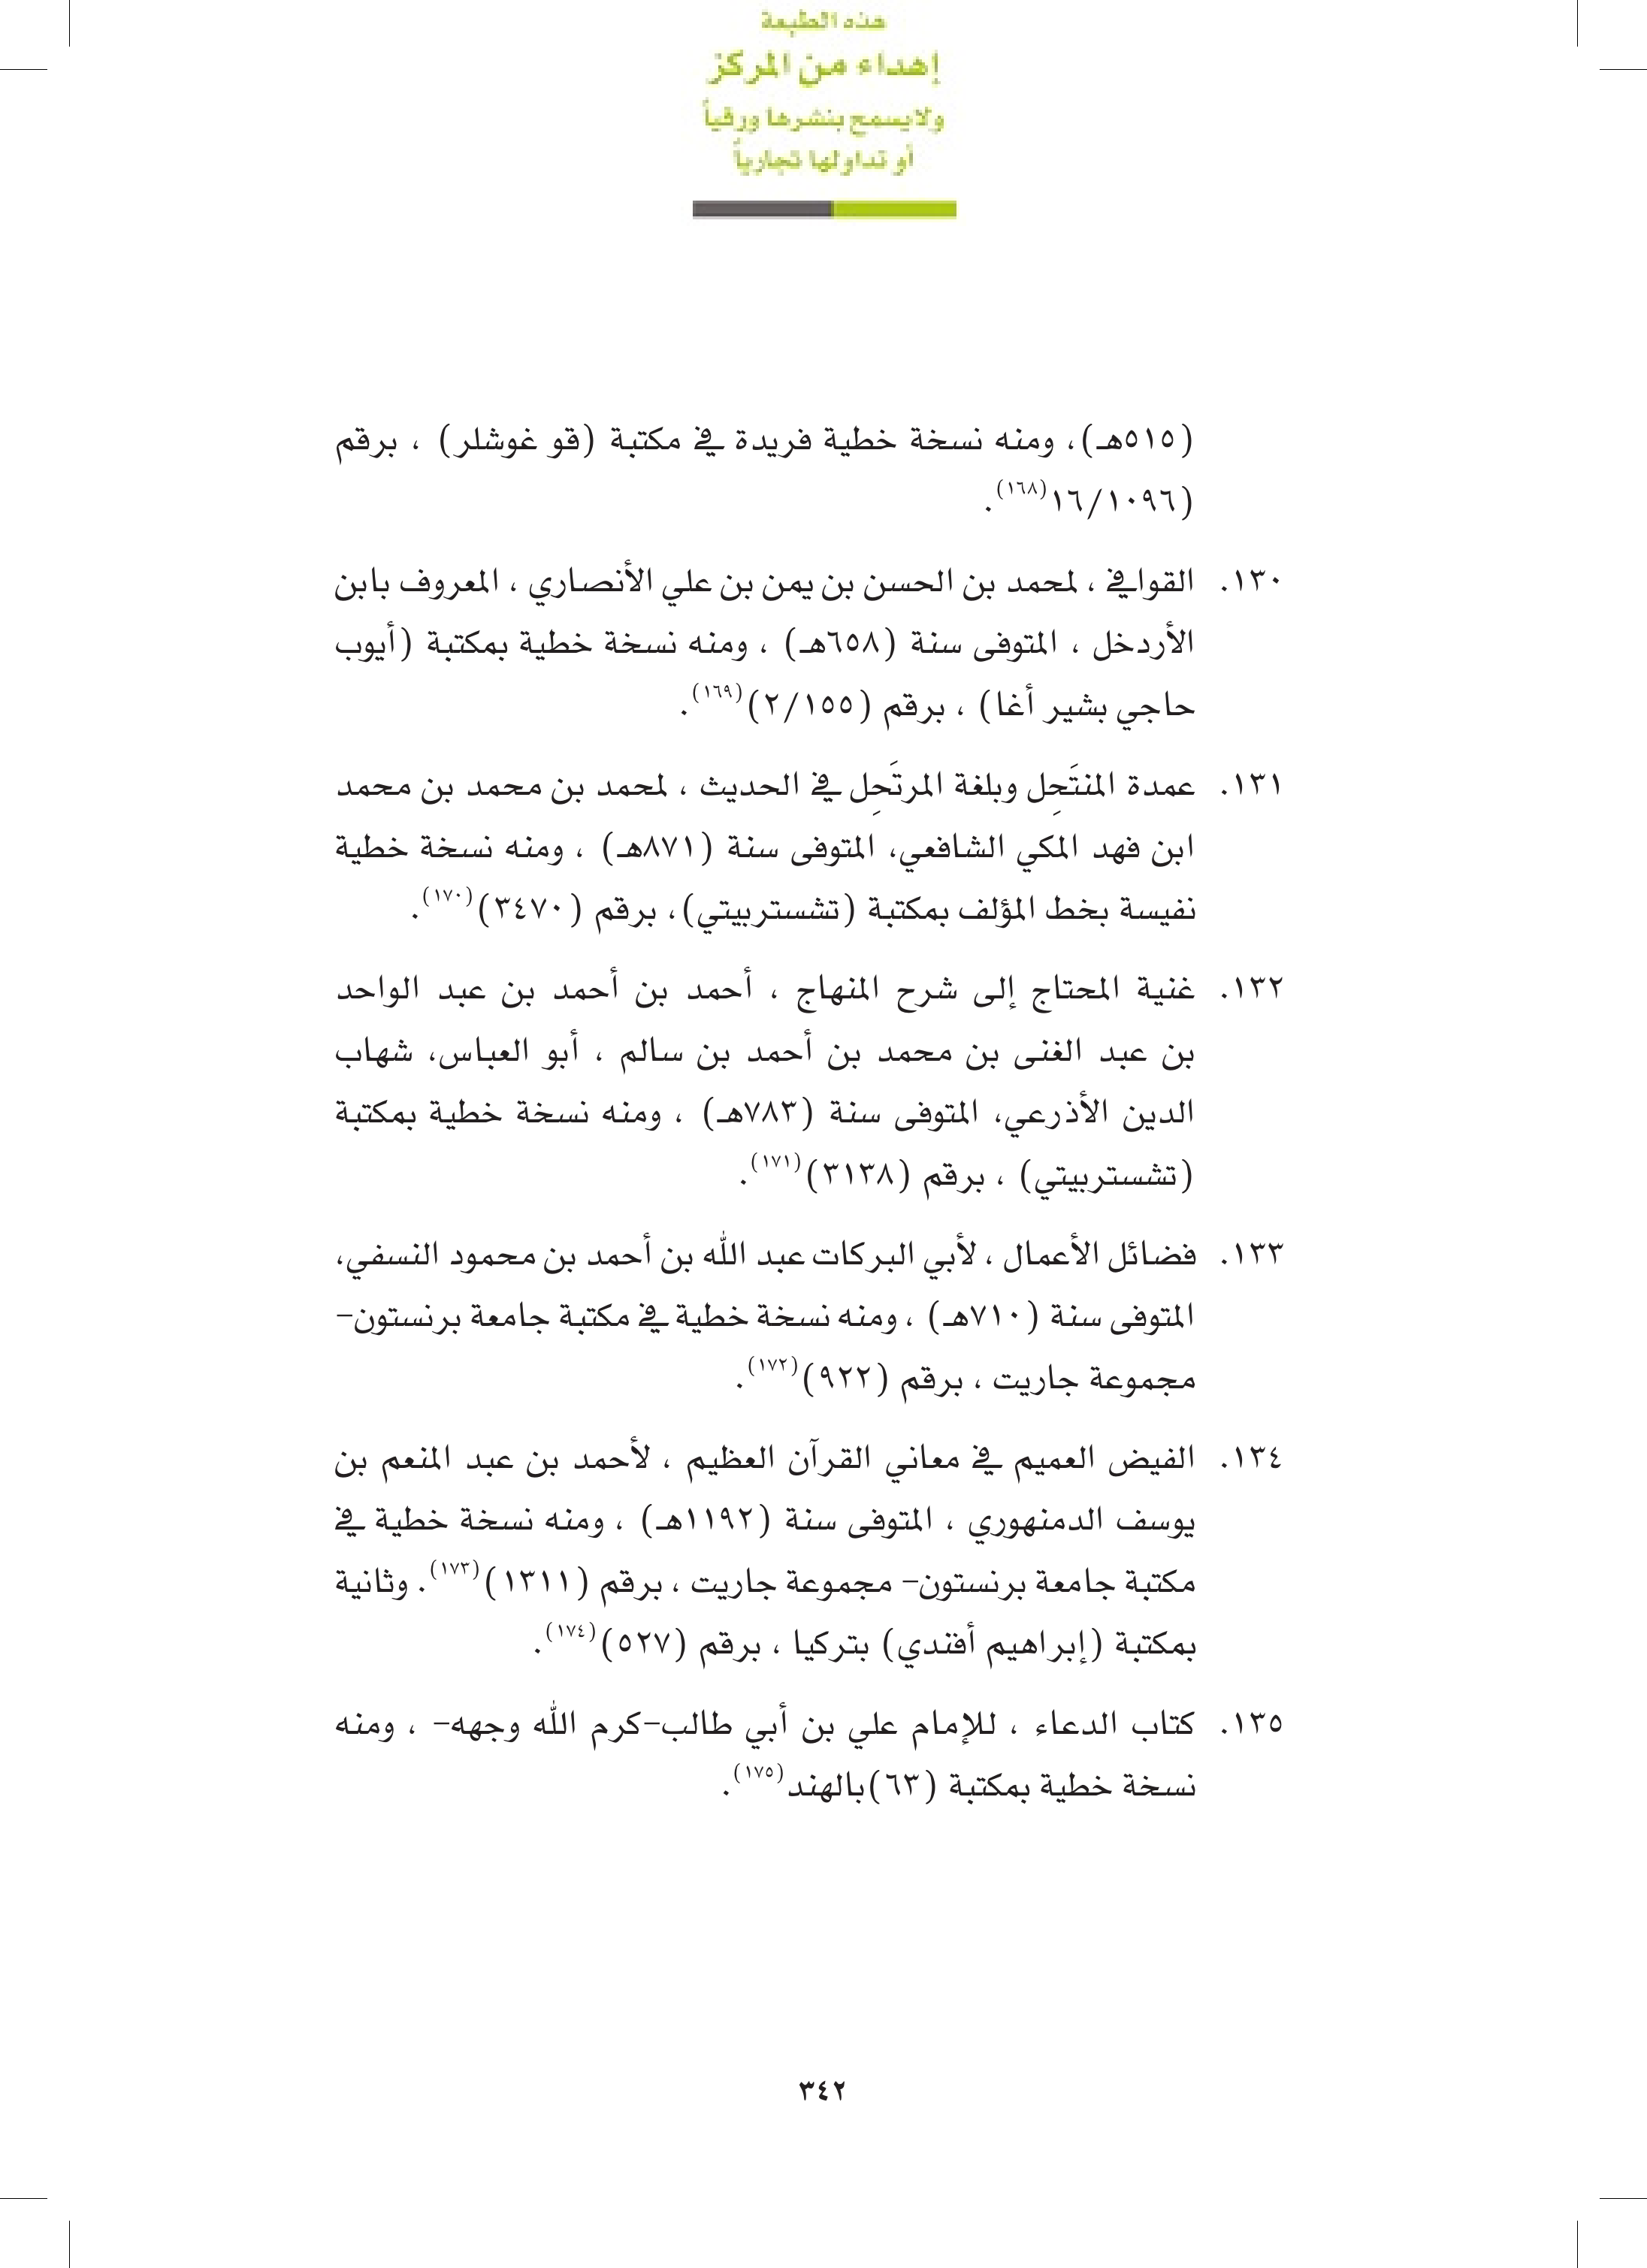 هذه الطبعة
إهداء من المركز
ولا يسمح بنشرها ورقياً
أو تداولها تجارياً
(٥١٥هـ)، ومنه نسخة خطية فريدة في مكتبة (قو غوشلر) ، برقم
(١٦/١٠٩٦(١٦٨).
١٣٠. القوافي ، لمحمد بن الحسن بن يمن بن علي الأنصاري ، المعروف بابن
الأردخل ، المتوفى سنة (٦٥٨هـ) ، ومنه نسخة خطية بمكتبة (أيوب
حاجي بشير أغا) ، برقم (٢/١٥٥)(١٦٩).
١٣١. عمدة المنتَحِل وبلغة المرتَحِل في الحديث ، لمحمد بن محمد بن محمد
ابن فهد المكي الشافعي، المتوفى سنة (٨٧١هـ) ، ومنه نسخة خطية
نفيسة بخط المؤلف بمكتبة (تشستربيتي)، برقم (٣٤٧٠)(١٧٠).
١٣٢. غنية المحتاج إلى شرح المنهاج ، أحمد بن أحمد بن عبد الواحد
بن عبد الغنى بن محمد بن أحمد بن سالم ، أبو العباس، شهاب
الدين الأذرعي، المتوفى سنة (٧٨٣هـ) ، ومنه نسخة خطية بمكتبة
(تشستربيتي) ، برقم (٣١٣٨)(١٧١).
١٣٣. فضائل الأعمال ، لأبي البركات عبد الله بن أحمد بن محمود النسفي،
المتوفى سنة (٧١٠هـ) ، ومنه نسخة خطية في مكتبة جامعة برنستون-
مجموعة جاريت ، برقم (٩٢٢)(١٧٢).
١٣٤. الفيض العميم في معاني القرآن العظيم ، لأحمد بن عبد المنعم بن
يوسف الدمنهوري ، المتوفى سنة (١١٩٢هـ) ، ومنه نسخة خطية في
مكتبة جامعة برنستون- مجموعة جاريت ، برقم (١٣١١)(١٧٣). وثانية
بمكتبة (إبراهيم أفندي) بتركيا ، برقم (٥٢٧)(١٧٤).
١٣٥. كتاب الدعاء ، للإمام علي بن أبي طالب-كرم الله وجهه- ، ومنه
نسخة خطية بمكتبة (٦٣)بالهند(١٧٥).
٣٤٢